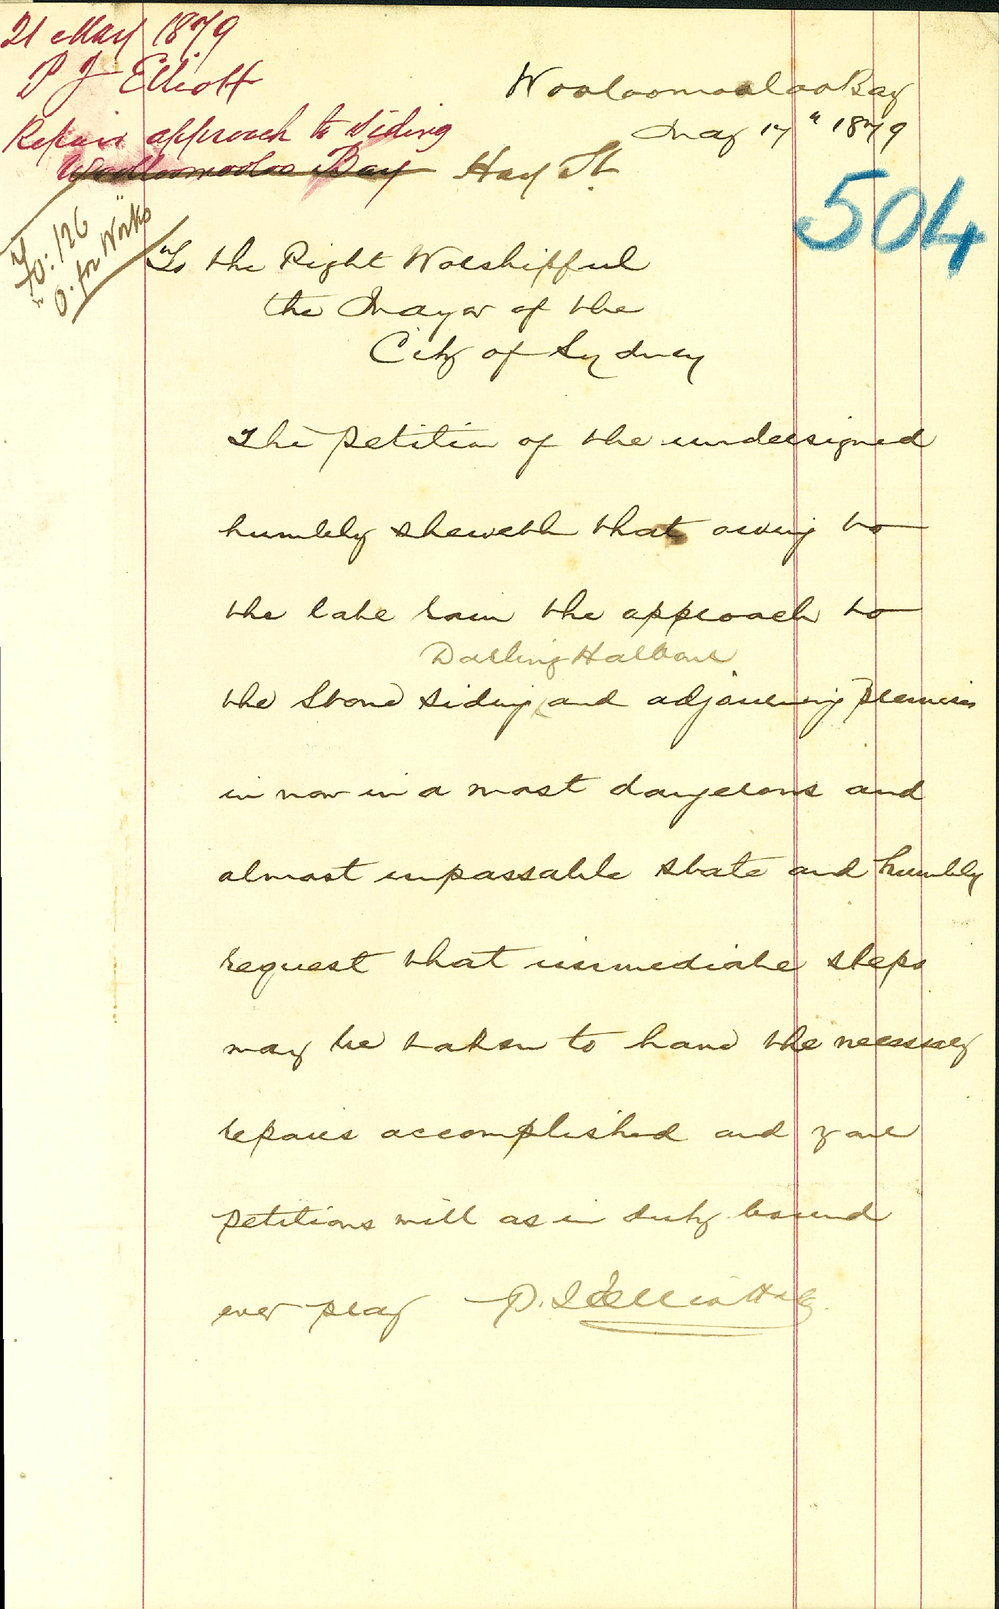 21 May 1879
P J Elliott
Repair approach to Siding
Woolloomooloo Bay Hay St
Wooloomooloo Bay
May 17th 1879
504
126
for Works
To the Right Worshipful
the Mayor of the
City of Sydney
The Petition of the undersigned
humbly sheweth that owing to
the late rain the approach to
Darling Harbour
the Stone siding and adjoining premises
is now in a most dangerous and
almost impassable state and humbly
request that immediate steps
may be taken to have the necessary
repairs accomplished and your
petitions will as in duty bound
ever pray P. J Elliott